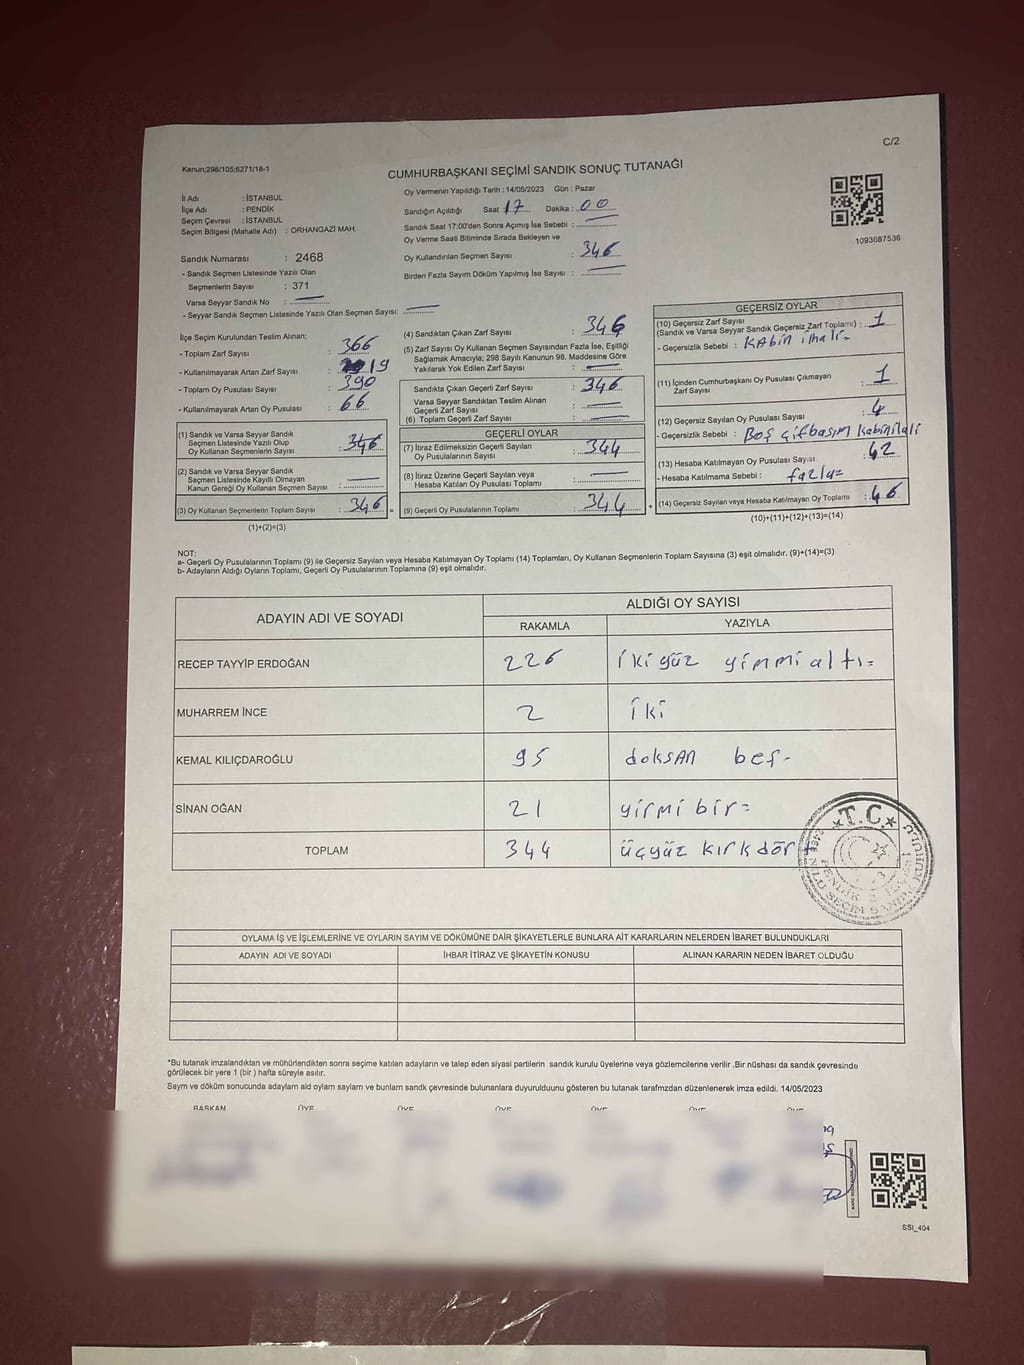 C/2
Kanun;298/105;6271/18-1
CUMHURBAŞKANI SEÇİMİ SANDIK SONUÇ TUTANAĞI
İl Adı : İSTANBUL
İlçe Adı : PENDİK
Seçim Çevresi : İSTANBUL
Seçim Bölgesi (Mahalle Adı) : ORHANGAZİ MAH.
Sandık Numarası : 2468
- Sandık Seçmen Listesinde Yazılı Olan
Seçmenlerin Sayısı : 371
Varsa Seyyar Sandık No : —
- Seyyar Sandık Seçmen Listesinde Yazılı Olan Seçmen Sayısı: —
Oy Vermenin Yapıldığı Tarih : 14/05/2023 Gün : Pazar
Sandığın Açıldığı Saat 17 Dakika : 00
Sandık Saat 17:00'den Sonra Açılmış İse Sebebi : —
Oy Verme Saati Bitiminde Sırada Bekleyen ve
Oy Kullandırılan Seçmen Sayısı : 346
Birden Fazla Sayım Döküm Yapılmış İse Sayısı : —
1093687536
İlçe Seçim Kurulundan Teslim Alınan;
- Toplam Zarf Sayısı : 366
- Kullanılmayarak Artan Zarf Sayısı : 19
- Toplam Oy Pusulası Sayısı : 390
- Kullanılmayarak Artan Oy Pusulası : 66
(1) Sandık ve Varsa Seyyar Sandık
Seçmen Listesinde Yazılı Olup
Oy Kullanan Seçmenlerin Sayısı : 346
(2) Sandık ve Varsa Seyyar Sandık
Seçmen Listesinde Kayıtlı Olmayan
Kanun Gereği Oy Kullanan Seçmen Sayısı : —
(3) Oy Kullanan Seçmenlerin Toplam Sayısı : 346 =
(1)+(2)=(3)
(4) Sandıktan Çıkan Zarf Sayısı : 346
(5) Zarf Sayısı Oy Kullanan Seçmen Sayısından Fazla İse, Eşitliği
Sağlamak Amacıyla; 298 Sayılı Kanunun 98. Maddesine Göre
Yakılarak Yok Edilen Zarf Sayısı : —
Sandıkta Çıkan Geçerli Zarf Sayısı : 346
Varsa Seyyar Sandıktan Teslim Alınan
Geçerli Zarf Sayısı : —
(6) Toplam Geçerli Zarf Sayısı : —
GEÇERLİ OYLAR
(7) İtiraz Edilmeksizin Geçerli Sayılan
Oy Pusulalarının Sayısı : 344
(8) İtiraz Üzerine Geçerli Sayılan veya
Hesaba Katılan Oy Pusulası Toplamı : —
(9) Geçerli Oy Pusulalarının Toplamı : 344 +
GEÇERSİZ OYLAR
(10) Geçersiz Zarf Sayısı
(Sandık ve Varsa Seyyar Sandık Geçersiz Zarf Toplamı) : 1
- Geçersizlik Sebebi : Kabin ihali=
(11) İçinden Cumhurbaşkanı Oy Pusulası Çıkmayan
Zarf Sayısı : 1
(12) Geçersiz Sayılan Oy Pusulası Sayısı : 4
- Geçersizlik Sebebi : Boş çiftbasım
(13) Hesaba Katılmayan Oy Pusulası Sayısı : 42
- Hesaba Katılmama Sebebi : fazla=
(14) Geçersiz Sayılan veya Hesaba Katılmayan Oy Toplamı : 46
(10)+(11)+(12)+(13)=(14)
NOT:
a- Geçerli Oy Pusulalarının Toplamı (9) ile Geçersiz Sayılan veya Hesaba Katılmayan Oy Toplamı (14) Toplamları, Oy Kullanan Seçmenlerin Toplam Sayısına (3) eşit olmalıdır. (9)+(14)=(3)
b- Adayların Aldığı Oyların Toplamı, Geçerli Oy Pusulalarının Toplamına (9) eşit olmalıdır.
ADAYIN ADI VE SOYADI ALDIĞI OY SAYISI
RAKAMLA YAZIYLA
RECEP TAYYİP ERDOĞAN 226 iki yüz yirmi altı=
MUHARREM İNCE 2 iki
KEMAL KILIÇDAROĞLU 95 doksan beş-
SİNAN OĞAN 21 yirmi bir=
TOPLAM 344 üçyüz kırkdört
T.C.
OYLAMA İŞ VE İŞLEMLERİNE VE OYLARIN SAYIM VE DÖKÜMÜNE DAİR ŞİKAYETLERLE BUNLARA AİT KARARLARIN NELERDEN İBARET BULUNDUKLARI
ADAYIN ADI VE SOYADI İHBAR İTİRAZ VE ŞİKAYETİN KONUSU ALINAN KARARIN NEDEN İBARET OLDUĞU
*Bu tutanak imzalandıktan ve mühürlendikten sonra seçime katılan adayların ve talep eden siyasi partilerin sandık kurulu üyelerine veya gözlemcilerine verilir .Bir nüshası da sandık çevresinde
görülecek bir yere 1 (bir ) hafta süreyle asılır.
Saym ve döküm sonucunda adaylam ald oylam saylam ve bunlam sandk çevresinde bulunanlara duyurulduunu gösteren bu tutanak tarafmzdan düzenlenerek imza edildi. 14/05/2023
BAŞKAN ÜYE ÜYE ÜYE ÜYE ÜYE ÜYE
SSI_404